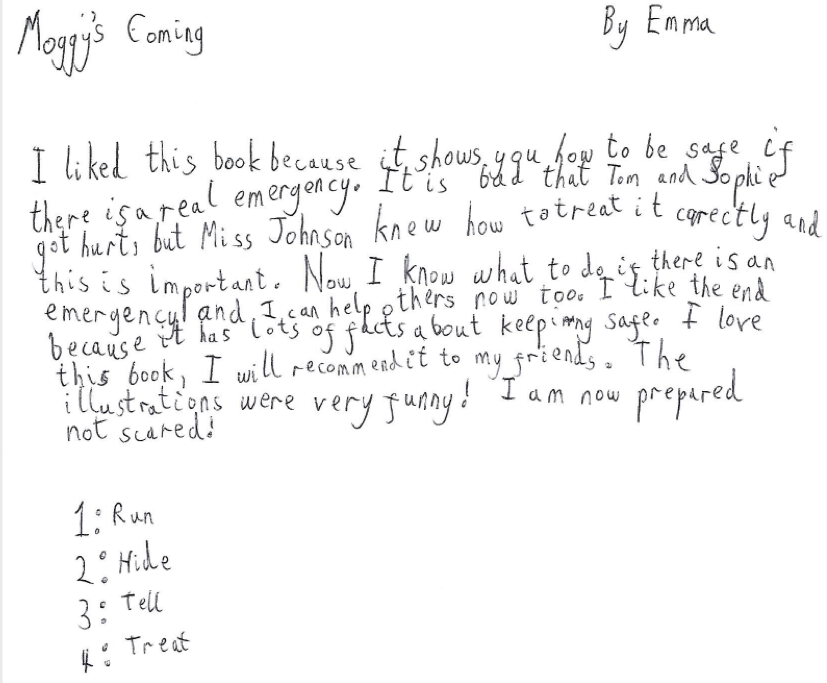 Moggy's Coming By Emma
I liked this book because it shows you how to be safe if
there is a real emergency. It is bad that Tom and Sophie
got hurt, but Miss Johnson knew how to treat it correctly and
this is important. Now I know what to do if there is an
emergency and I can help others now too. I like the end
because it has lots of facts about keeping safe. I love
this book, I will recommend it to my friends. The
illustrations were very funny! I am now prepared
not scared!
1: Run
2: Hide
3: Tell
4: Treat